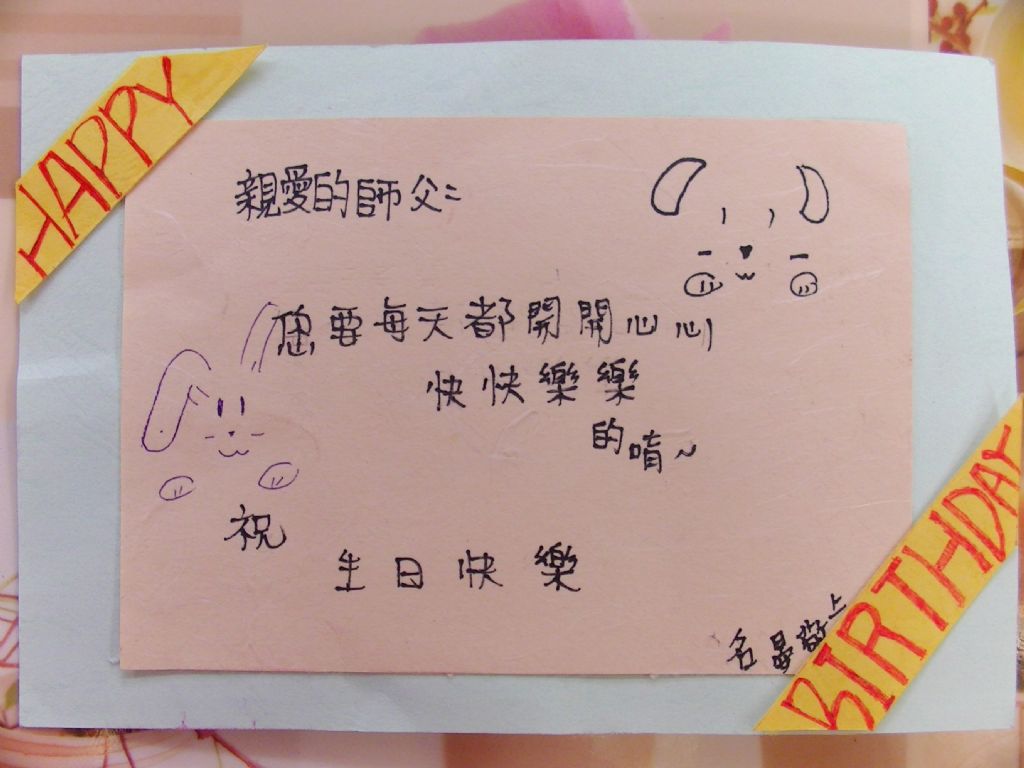 HAPPY
親愛的師父:
您要每天都開開心心
快快樂樂
的唷~
祝
生日快樂
敬上
BIRTHDAY